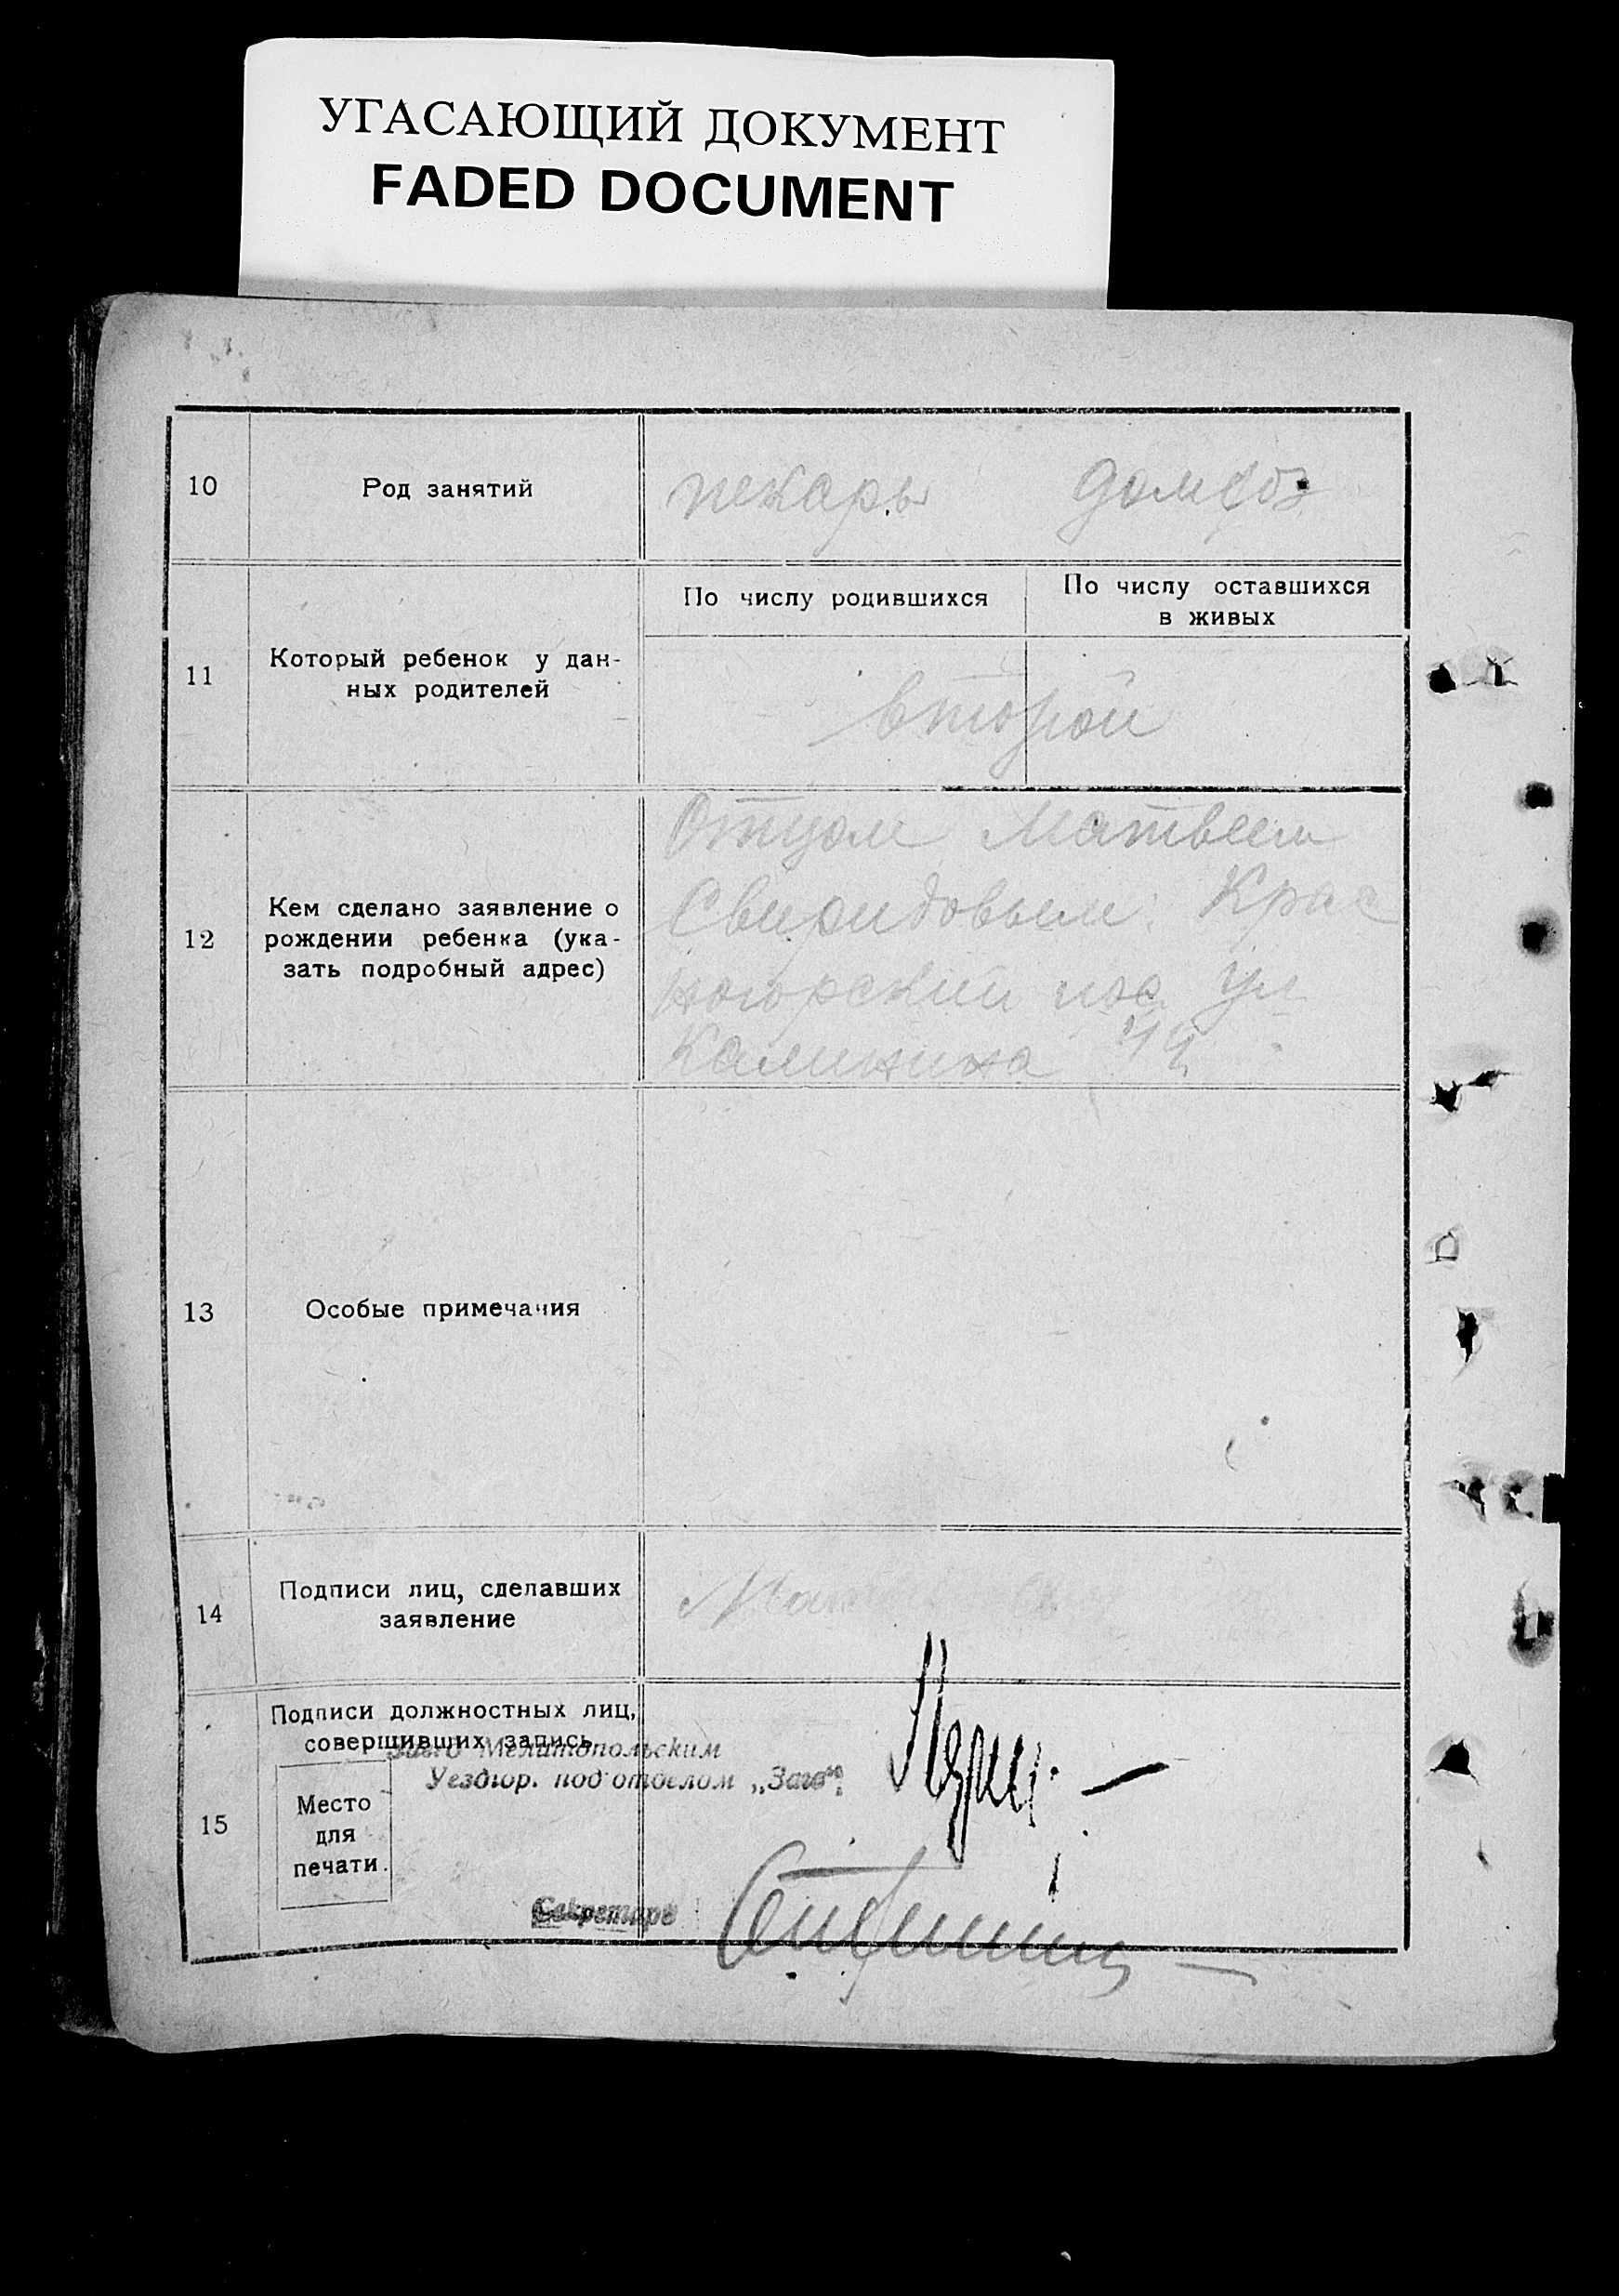 УГАСАЮЩИЙ ДОКУМЕНТ
FADED DOCUMENT
10
Род занятий
пекарь
11
Который ребенок у дан-
ных родителей
По числу родившихся
По числу оставшихся
в живых
второй
12
Кем сделано заявление о
рождении ребенка (ука-
зать подробный адрес)
Отцом Матвеем
Свиридовым: Крас
ногорский пос ул
Калинина
13
Особые примечания
14
Подписи лиц, сделавших
заявление
15
Подписи должностных лиц,
совершивших запись
Мелитопольским
Уездгор. подотделом „Загс“:
Место
для
печати.
Секретарь